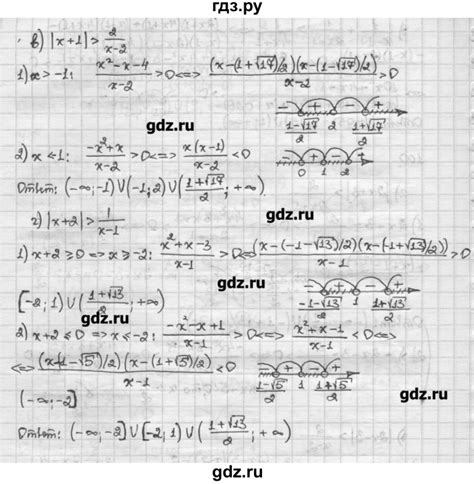 гдз.ру
в) |x+1| > 2/(x-2)
1) x > -1: (x²-x-4)/(x-2) > 0 <=> (x-(1+√17)/2)(x-(1-√17)/2)/(x-2) > 0
- + - +
(1-√17)/2 2 (1+√17)/2
gdz.ru
2) x < -1: (-x²+x)/(x-2) > 0 <=> x(x-1)/(x-2) < 0
- + - +
0 1 2
gdz.ru
Ответ: (-∞;-1)∪(-1;2)∪((1+√17)/2; +∞).
г) |x+2| > 1/(x-1)
gdz.ru
1) x+2 ≥ 0 => x ≥ -2: (x²+x-3)/(x-1) > 0 <=> (x-(-1-√13)/2)(x-(-1+√13)/2)/(x-1) > 0
[-2; 1)∪((1+√13)/2; +∞)
- + - +
(-1-√13)/2 1 (1+√13)/2
gdz.ru
2) x+2 ≤ 0 => x ≤ -2: (-x²-x+1)/(x-1) > 0 <=> (x²+x-1)/(x-1) < 0
<=> (x-(1-√5)/2)(x-(1+√5)/2)/(x-1) < 0
- + - +
(1-√5)/2 1 (1+√5)/2
(-∞;-2]
gdz.ru
Ответ: (-∞;-2]∪[-2; 1)∪((1+√13)/2; +∞)
gdz.ru
gdz.ru